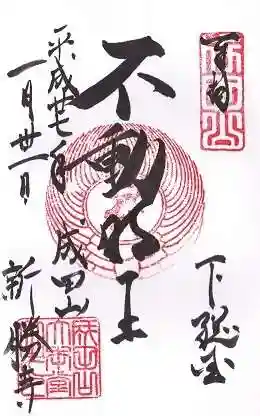 奉拝
下総国
不動明王
成田山
新勝寺
平成廿七年
一月廿一日